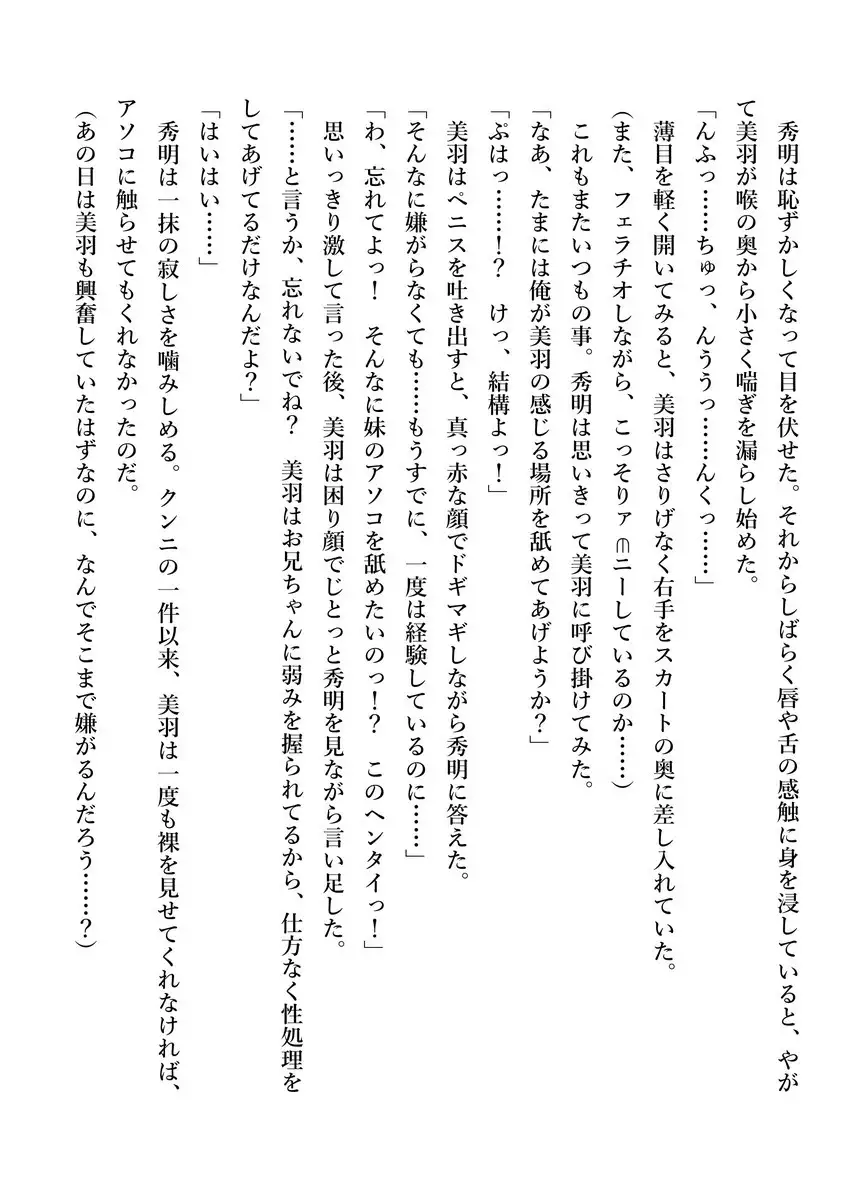 秀明は恥ずかしくなって目を伏せた。それからしばらく唇や舌の感触に身を浸していると、やが
て美羽が喉の奥から小さく喘ぎを漏らし始めた。
「んふっ……ちゅっ、んううっ……んくっ……」
薄目を軽く開いてみると、美羽はさりげなく右手をスカートの奥に差し入れていた。
(また、フェラチオしながら、こっそりァニーしているのか……)
これもまたいつもの事。秀明は思いきって美羽に呼び掛けてみた。
「なあ、たまには俺が美羽の感じる場所を舐めてあげようか?」
「ぷはっ……!? けっ、結構よっ!」
美羽はペニスを吐き出すと、真っ赤な顔でドギマギしながら秀明に答えた。
「そんなに嫌がらなくても……もうすでに、一度は経験しているのに……」
「わ、忘れてよっ! そんなに妹のアソコを舐めたいのっ!? このヘンタイっ!」
思いっきり激して言った後、美羽は困り顔でじとっと秀明を見ながら言い足した。
「……と言うか、忘れないでね? 美羽はお兄ちゃんに弱みを握られてるから、仕方なく性処理を
してあげてるだけなんだよ?」
「はいはい……」
秀明は一抹の寂しさを噛みしめる。クンニの一件以来、美羽は一度も裸を見せてくれなければ、
アソコに触らせてもくれなかったのだ。
(あの日は美羽も興奮していたはずなのに、なんでそこまで嫌がるんだろう……?)